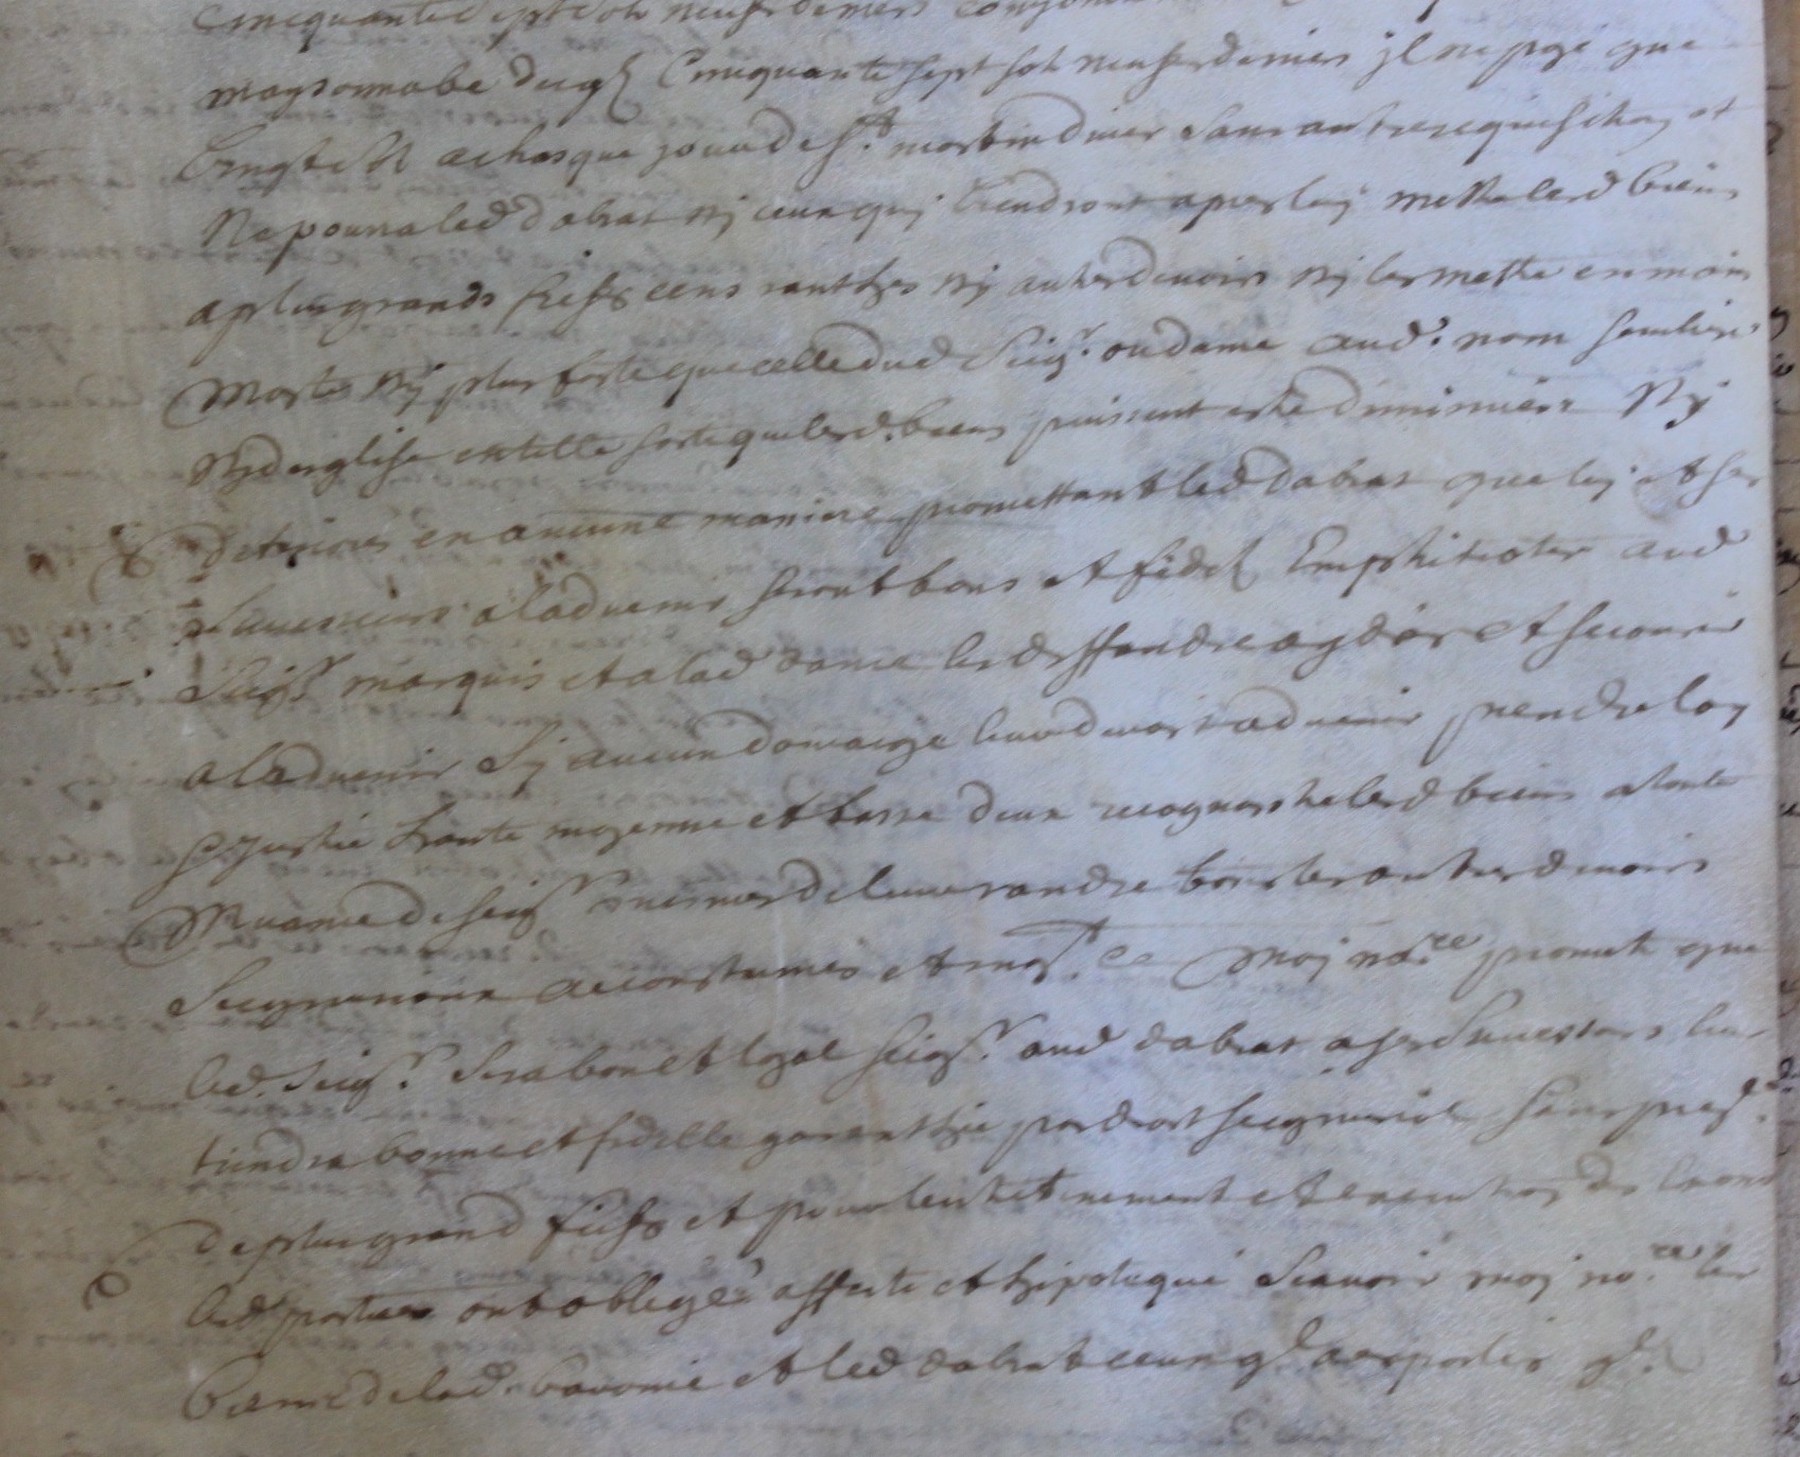 Cincquante sept solz neuf deniers
maysonnabe duql Cincquante sept solz neuf deniers jl ne paye que
a chasque jour de St. martin d'iver sans autre requisition et
Ne pourra led dabrat ny ceux quj tiendront apres luy mettre lesd biens
a plus grands fiefs cens ranthes nj autres devoirs nj les mettre en main
Morte nj plus forte que celle dud Seigr. ou dame aud. nom
Ny d'esglise en telle sorte que lesd. biens puissent estre diminuees Nj
deteriores en aucune maniere promettant led dabrat que luj et ses
Successeurs a ladvenir seront bons et fidelz Emphiteotes aud
Seigr. marquis et a lad dame les deffandre ayder et secourir
a ladvenir Sy aucun domaige leur devoit advenir prendre loy
Et justice haute moyenne et basse deux recognoistre lesd biens a toute
Muance de seigr et mesmes de leur randre tous les autres devoirs
Seigneuriaux accoustumes et Moj nore promets que
led. Seigr. Sera bon et loyal Seigr. aud dabrat a ses Successeurs leur
tiendra bonne et fidelle garanthie par droit seigneurial sans
de plus grand fiefs et pour l'entretenement et execution de
lesd parties ont obligé affecté et hipotequé Scavoir moj nore les
biens de lad. baronie et led dabrat ceux